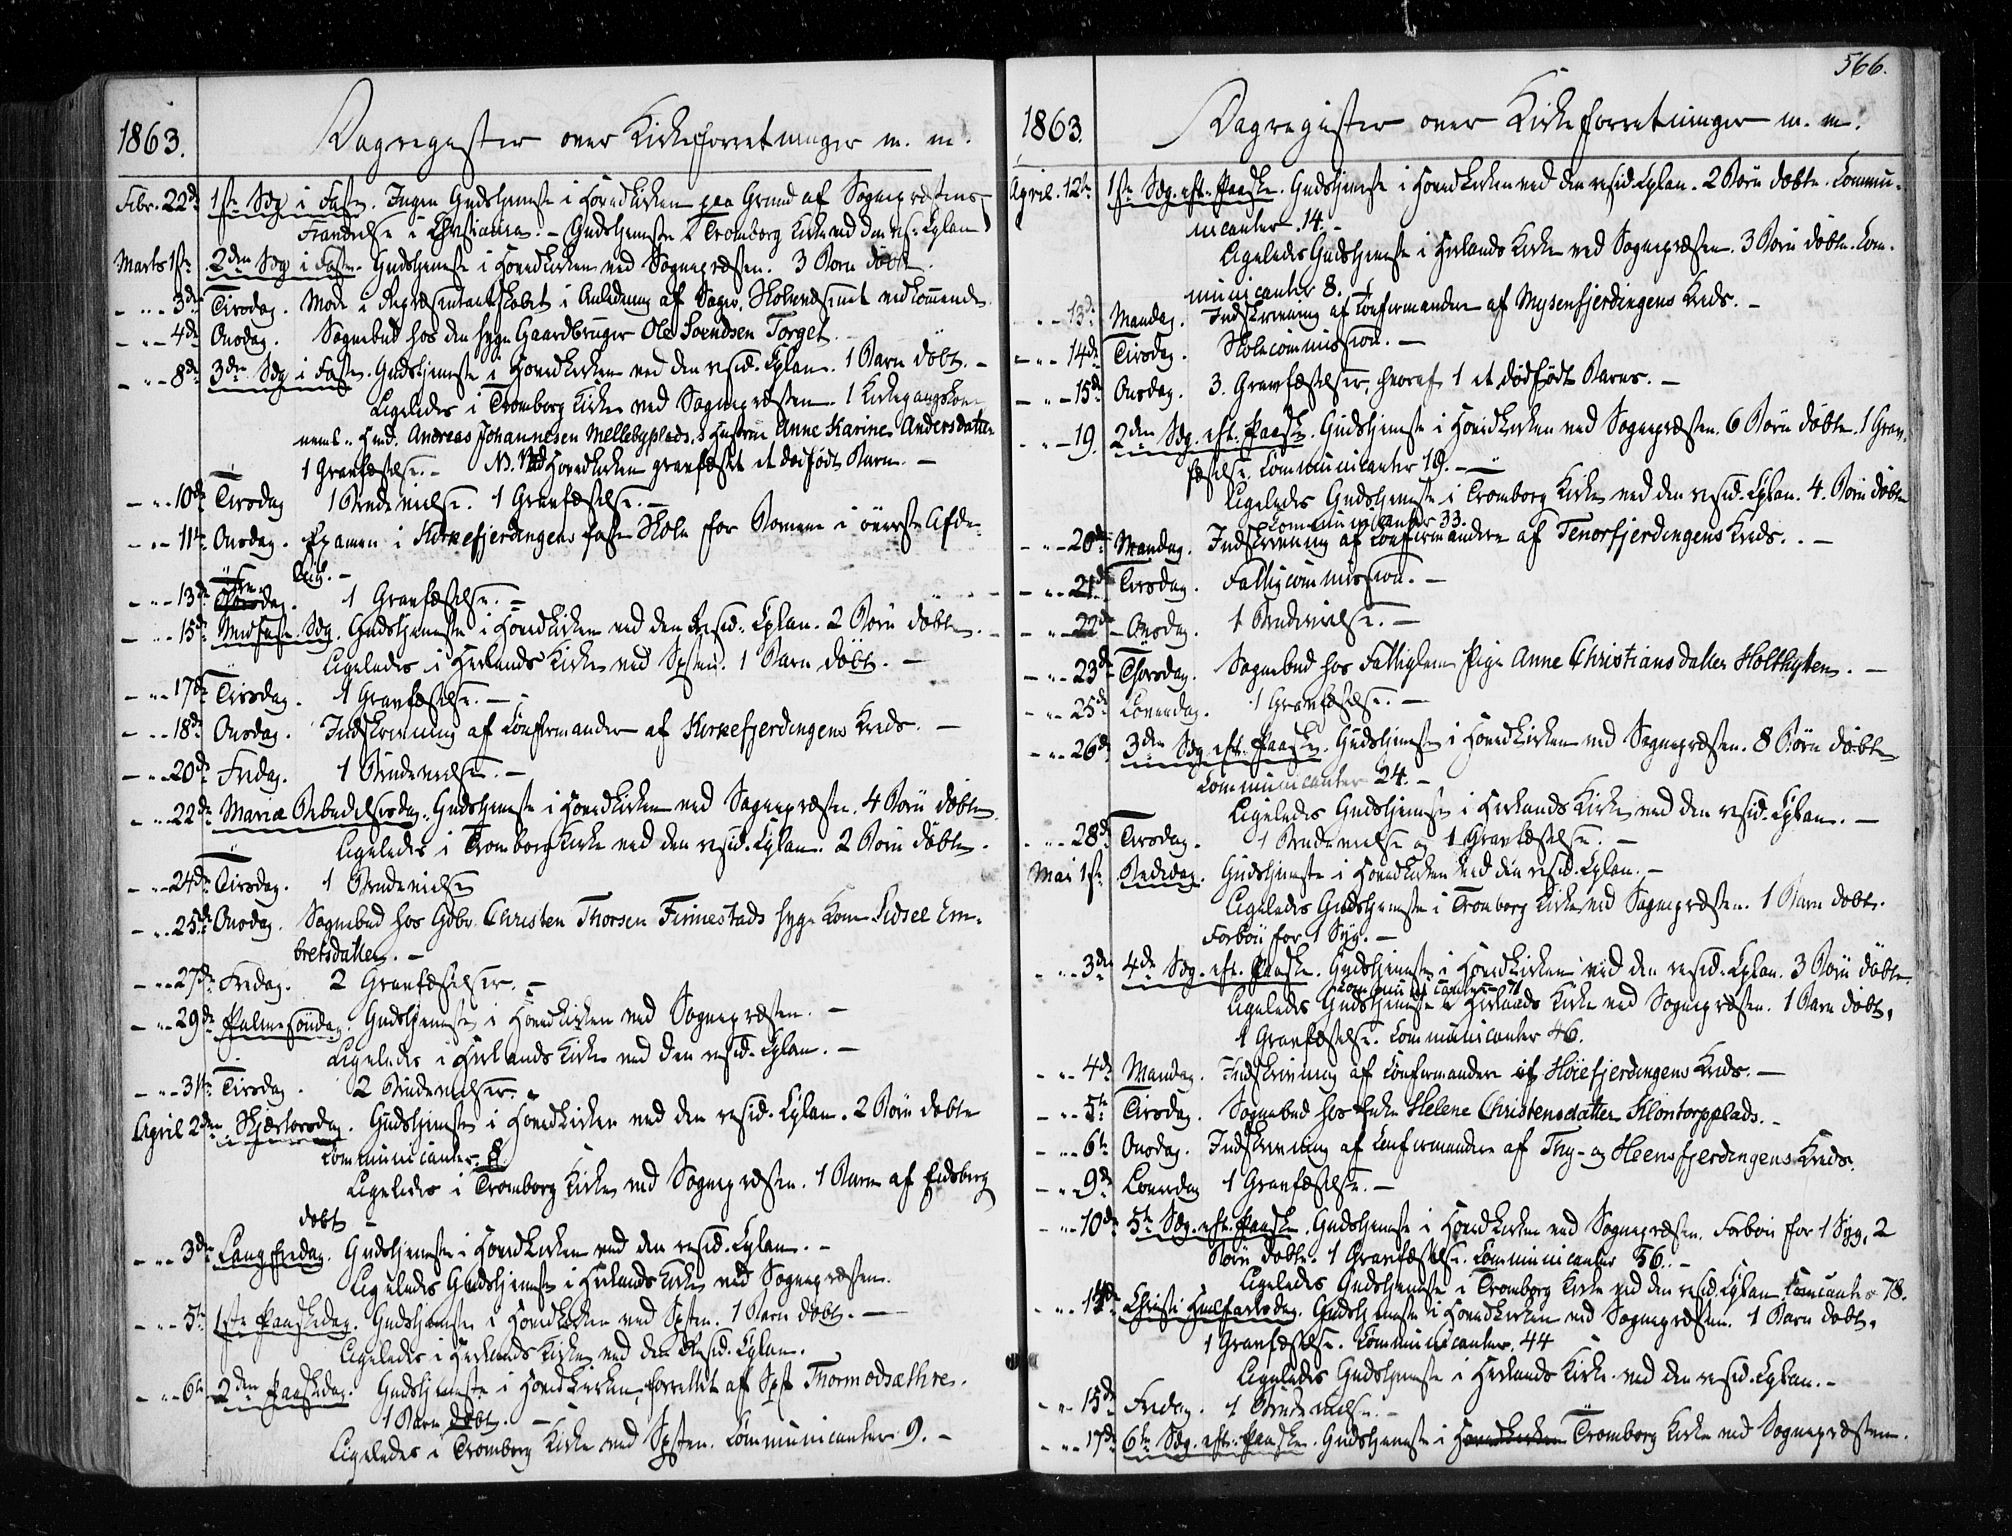 1863.
Dagregister over Kirkeforretninger m. m.
Febr. 22de 1ste Sdg i Faste. Ingen Gudstjeneste i Hovedkirken paa Grund af Sognepræstens
Fraværelse i Christiania. - Gudstjeneste i Tromborg Kirke ved den res: Cplan
Marts 1ste 2den Sdg i Faste. Gudstjeneste i Hovedkirken ved Sognepræsten. 3 Børn døbte.
- " - 3die Tirsdag. Møde i Repræsentantskabet i Anledning af Sager, Skolevæsenet vedkommende.
- " - 4de Onsdag. Sognebud hos den syge Gaardbruger Ole Svendsen Torget.
- " - 8de 3die Sdg i Faste. Gudstjeneste i Hovedkirken ved den resid. Cplan. 1 Barn døbt. -
Ligeledes i Tromborg Kirke ved Sognepræsten. 1 Kirkegangskone
nemt. Hmd. Andreas Johannesen Mellebyplads.s Hustru Anne Karine Andersdatter
1 Gravfæstelse. - NB. Ved Hovedkirken gravfæstet et dødfødt Barn. -
- " - 10de Tirsdag 1 Brudevielse. 1 Gravfæstelse. -
- " - 11te Onsdag. Examen i Kirkefjerdingens faste Skole for Børnene i øverste Afde-
ling. -
- " - 13de Fredag. 1 Gravfæstelse. -
- " - 15de Midfaste Sdg. Gudstjeneste i Hovedkirken ved den Resid. Cplan. 2 Børn døbte. -
Ligeledes i Herlands Kirke ved Spsten. 1 Barn døbt. -
- " - 17de Tirsdag. 1 Gravfæstelse. -
- " - 18de Onsdag. Indskrivning af Confirmander af Kirkefjerdingens Kreds. -
- " - 20de Fredag. 1 Brudevielse. -
- " - 22de Mariæ Bebudelsesdag. Gudstjeneste i Hovedkirken ved Sognepræsten. 4 Børn døbte.
Ligeledes i Tromborg Kirke ved den resid. Cplan. 2 Børn døbte.
- " - 24de Tirsdag. 1 Brudevielse
- " - 25de Onsdag. Sognebud hos Gdbr. Christen Thorsen Finnestads syge Kone Sidsel Em-
bretsdatter. -
- " - 27de Fredag. 2 Gravfæstelser. -
- " - 29de Palmesøndag. Gudstjeneste i Hovedkirken ved Sognepræsten. -
Ligeledes i Herlands Kirke ved den resid. Cplan. -
- " - 31te Tirsdag. 2 Brudevielser. -
April 2den Skjærtorsdag. Gudstjeneste i Hovedkirken ved den resid. Cplan. 2 Børn døbte
Communicanter. 8.
Ligeledes i Tromborg Kirke ved Sognepræsten. 1 Barn af Eidsberg
døbt -
- " - 3die Langfredag. Gudstjeneste i Hovedkirken ved den resid. Cplan. -
Ligeledes Gudstjeneste i Herlands Kirke ved Sognepræsten.
- " - 5te 1ste Paaskedag. Gudstjeneste i Hovedkirken ved Spsten. 1 Barn døbt. -
Ligeledes i Herlands Kirke ved den Resid. Cplan.
- " - 6te 2den Paaskedag. Gudstjeneste i Hovedkirken, forrettet af Spst Thormodsæthre.
1 Barn døbt. -
Ligeledes i Tromborg Kirke ved Spsten. Communicanter 9. -
566.
1863.
Dagregister over Kirkeforretninger m. m.
April. 12te 1ste Sdg. eft. Paaske. Gudstjeneste i Hovedkirken ved den resid. Cplan. 2 Børn døbte. Commu-
nicanter. 14. -
Ligeledes Gudstjeneste i Herlands Kirke ved Sognepræsten. 3 Børn døbte. Com-
municanter 8. -
- " - 13de Mandag. Indskrivning af Confirmander af Mysenfjerdingens Kreds. -
- " - 14de Tirsdag. Skolecommission. -
- " - 15de Onsdag. 3. Gravfæstelser, hvoraf 1 et dødfødt Barns. -
- " - 19. 2den Sdg. eft. Paaske. Gudstjeneste i Hovedkirken ved Sognepræsten. 6 Børn døbte. 1 Grav-
fæstelse. Communicanter 19. -
Ligeledes Gudstjeneste i Tromborg Kirke ved den resid. Cplan. 4. Børn døbte
Communicanter 33.
- " - 20de Mandag. Indskrivning af Confirmandere af Tenorfjerdingens Kreds. . -
- " - 21de Tirsdag. Fattigcommission. -
- " - 22de Onsdag. 1 Brudevielse. -
- " - 23de Thorsdag. Sognebud hos Fattiglem Pige Anne Christiansdatter Holthytten. -
- " - 25de Løverdag. 1 Gravfæstelse. -
- " - 26de 3die Sdg eft. Paaske. Gudstjeneste i Hovedkirken ved Sognepræsten. 8 Børn døbte
Communicanter 24. -
Ligeledes Gudstjeneste i Herlands Kirke ved den resid. Cplan. -
- " - 28de Tirsdag. 1 Brudevielse og 1 Gravfæstelse. -
Mai 1ste Bededag. Gudstjeneste i Hovedkirken ved den resid. Cplan. -
Ligeledes Gudstjeneste i Tromborg Kirke ved Sognepræsten. 1 Barn døbt.
Forbøn for 1 Syg. -
- " - 3die 4de Sdg. eft. Paaske. Gudstjeneste i Hovedkirken ved den resid. Cplan. 3 Børn døbte.
Communicanter 71
Ligeledes Gudstjeneste i Herlands Kirke ved Sognepræsten. 1 Barn døbt,
1 Gravfæstelse. Communicanter 46.
- " - 4de Mandag. Indskrivning af Confirmandere af Høiefjerdingens Kreds. -
- " - 5te Tirsdag. Sognebud hos Enke Helene Christensdatter Klontorpplads. -
- " - 6te Onsdag. Indskrivning af Confirmandere af Thy- og Heensfjerdingens Kreds.
- " - 9de Løverdag 1 Gravfæstelse. -
- " - 10de 5te Sdg. eft. Paaske. Gudstjeneste i Hovedkirken ved Sognepræsten. Forbøn for 1 Syg, 2
Børn døbte. 1 Gravfæstelse. Communicanter 56. -
Ligeledes Gudstjeneste i Tromborg Kirke ved den resid. Cplan. Comcanter 78.
- " - 14de Christi Himmelfartsdag. Gudstjeneste i Hovedkirken ved Sognepræsten. 1 Barn døbt,
1 Gravfæstelse. Communicanter, 44
Ligeledes Gudstjeneste i Herlands Kirke ved den resid. Cplan. -
- " - 15de Fredag. 1 Brudevielse. -
- " - 17de 6te Sdg. eft. Paaske. Gudstjeneste i Hovedkirken Tromborg Kirke ved Sognepræsten.